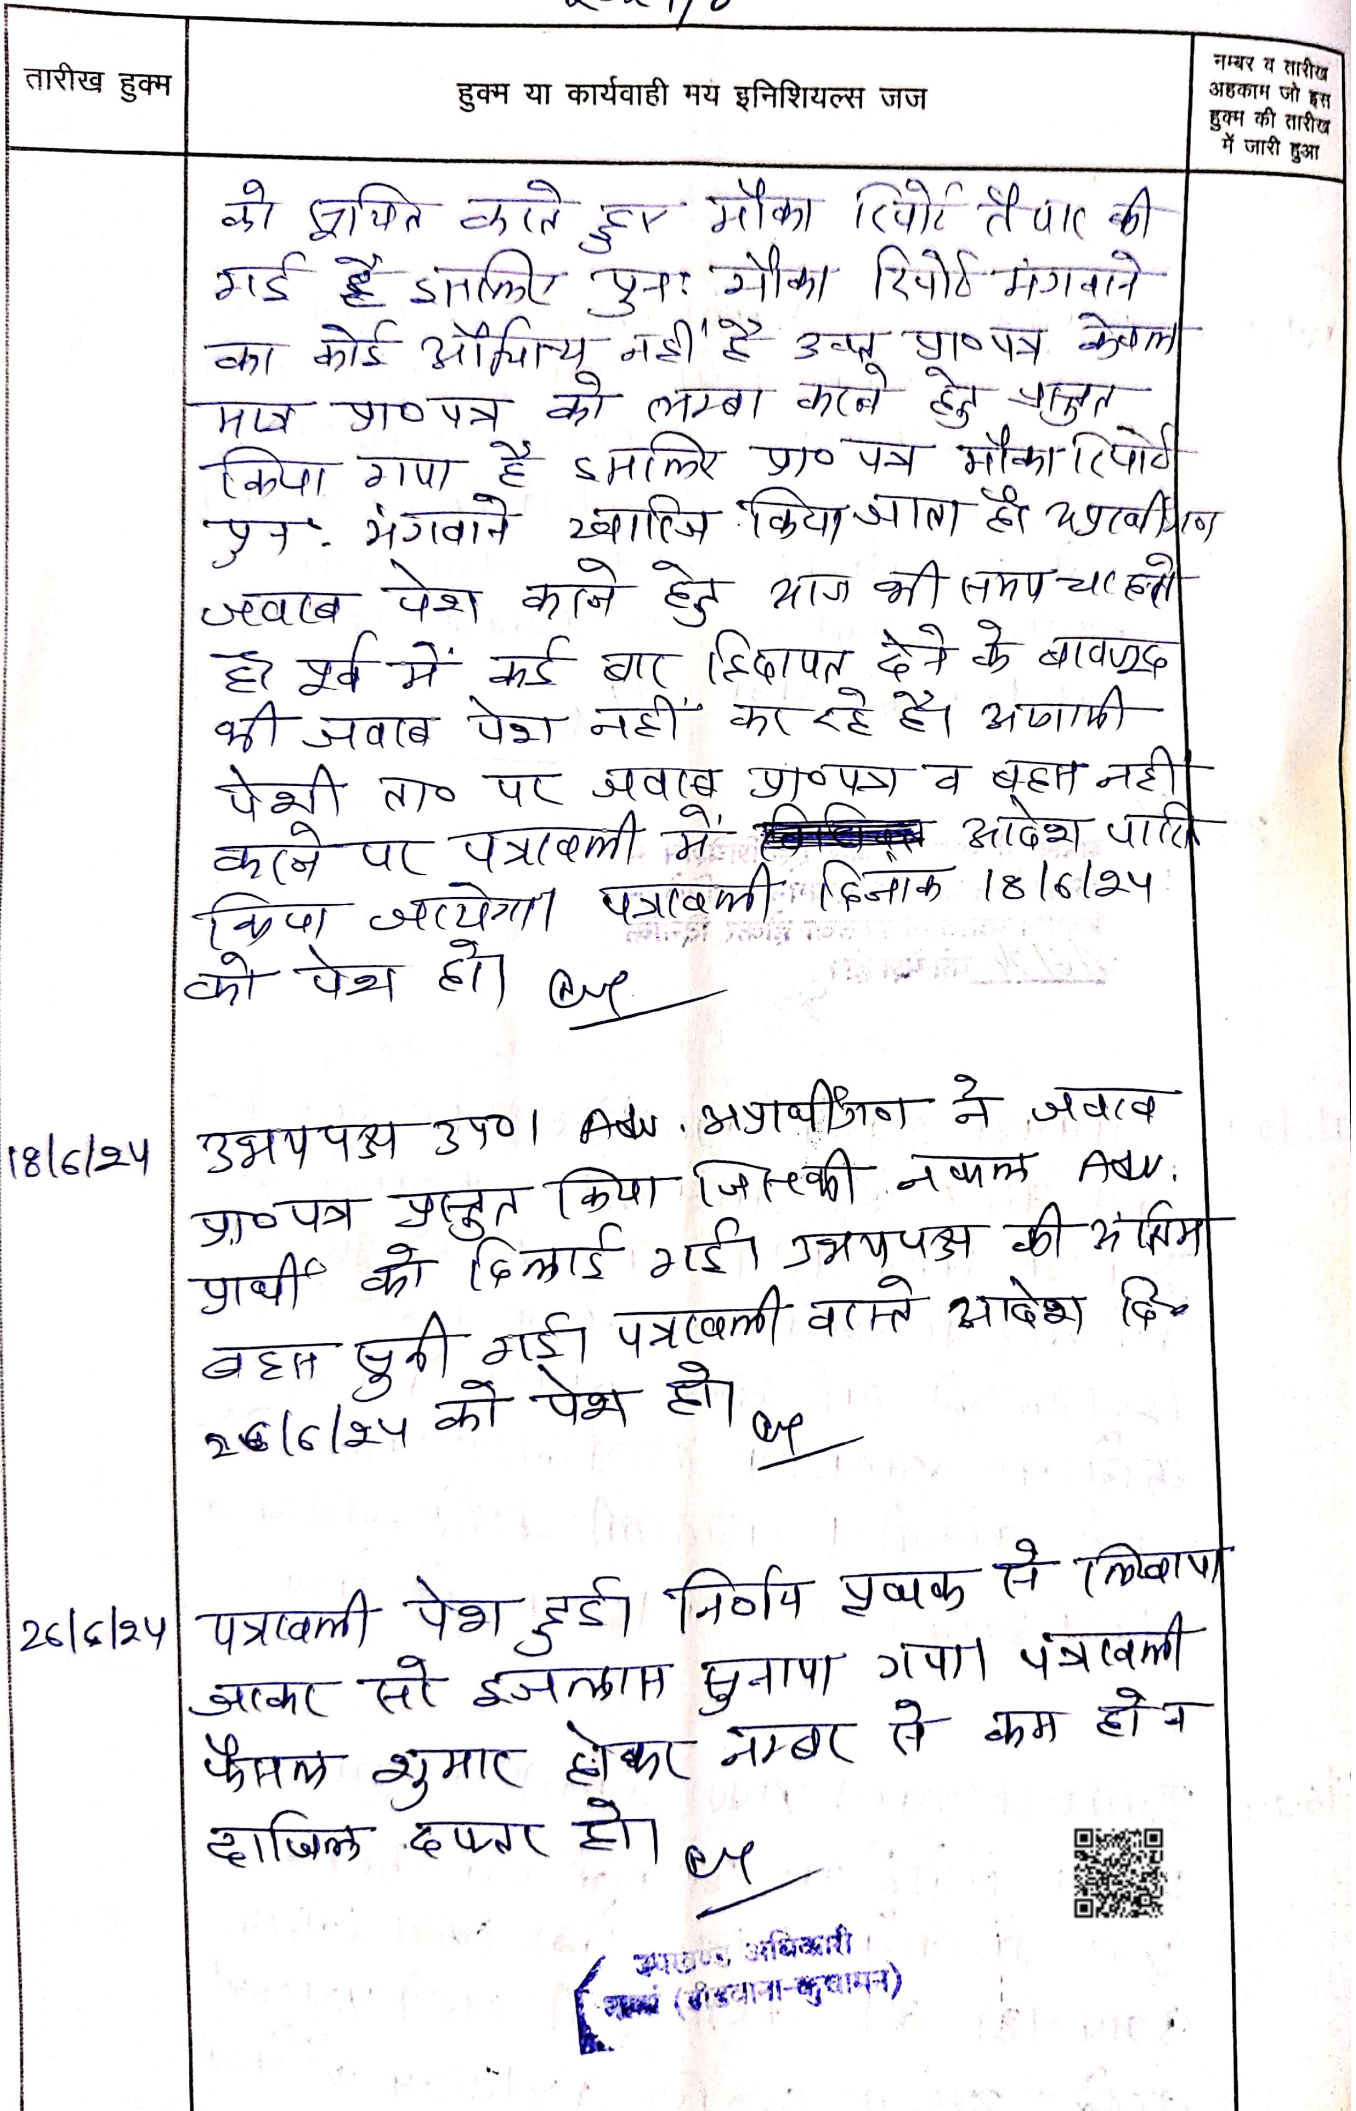 तारीख हुक्म
हुक्म या कार्यवाही मय इनिशियल्स जज
नम्बर व तारीख
अहकाम जो इस
हुक्म की तारीख
में जारी हुआ
को सूचित करते हुए मौका रिपोर्ट तैयार की
गई है इसलिए पुनः मौका रिपोर्ट मंगवाने
का कोई औचित्य नहीं है उक्त प्रा०पत्र केवल
मात्र प्रा०पत्र को लम्बा करने हेतु प्रस्तुत
किया गया है इसलिए प्रा० पत्र मौका रिपोर्ट
पुनः मंगवाने खारिज किया जाता है। अप्रार्थीगण
जवाब पेश करने हेतु आज भी समय चाहते
है। पूर्व में कई बार हिदायत देने के बावजूद
भी जवाब पेश नहीं कर रहे है। आगामी
पेशी ता० पर जवाब प्रा०पत्र व बहस नही
करने पर पत्रावली में आदेश पारित
किया जायेगा। पत्रावली दिनांक 18/6/24
को पेश हो।
18/6/24
उभयपक्ष उप०। Adv. अप्रार्थीगण ने जवाब
प्रा०पत्र प्रस्तुत किया जिसकी नकल Adv.
प्रार्थी को दिलाई गई। उभयपक्ष की अंतिम
बहस सुनी गई। पत्रावली वास्ते आदेश दि०
26/6/24 को पेश हो।
26/6/24
पत्रावली पेश हुई। निर्णय पृथक से लिखाया
जाकर सरे इजलास सुनाया गया। पत्रावली
फैसल शुमार होकर नम्बर से कम होने
दाखिल दफ्तर हो।
उपखण्ड अधिकारी
(डीडवाना-कुचामन)